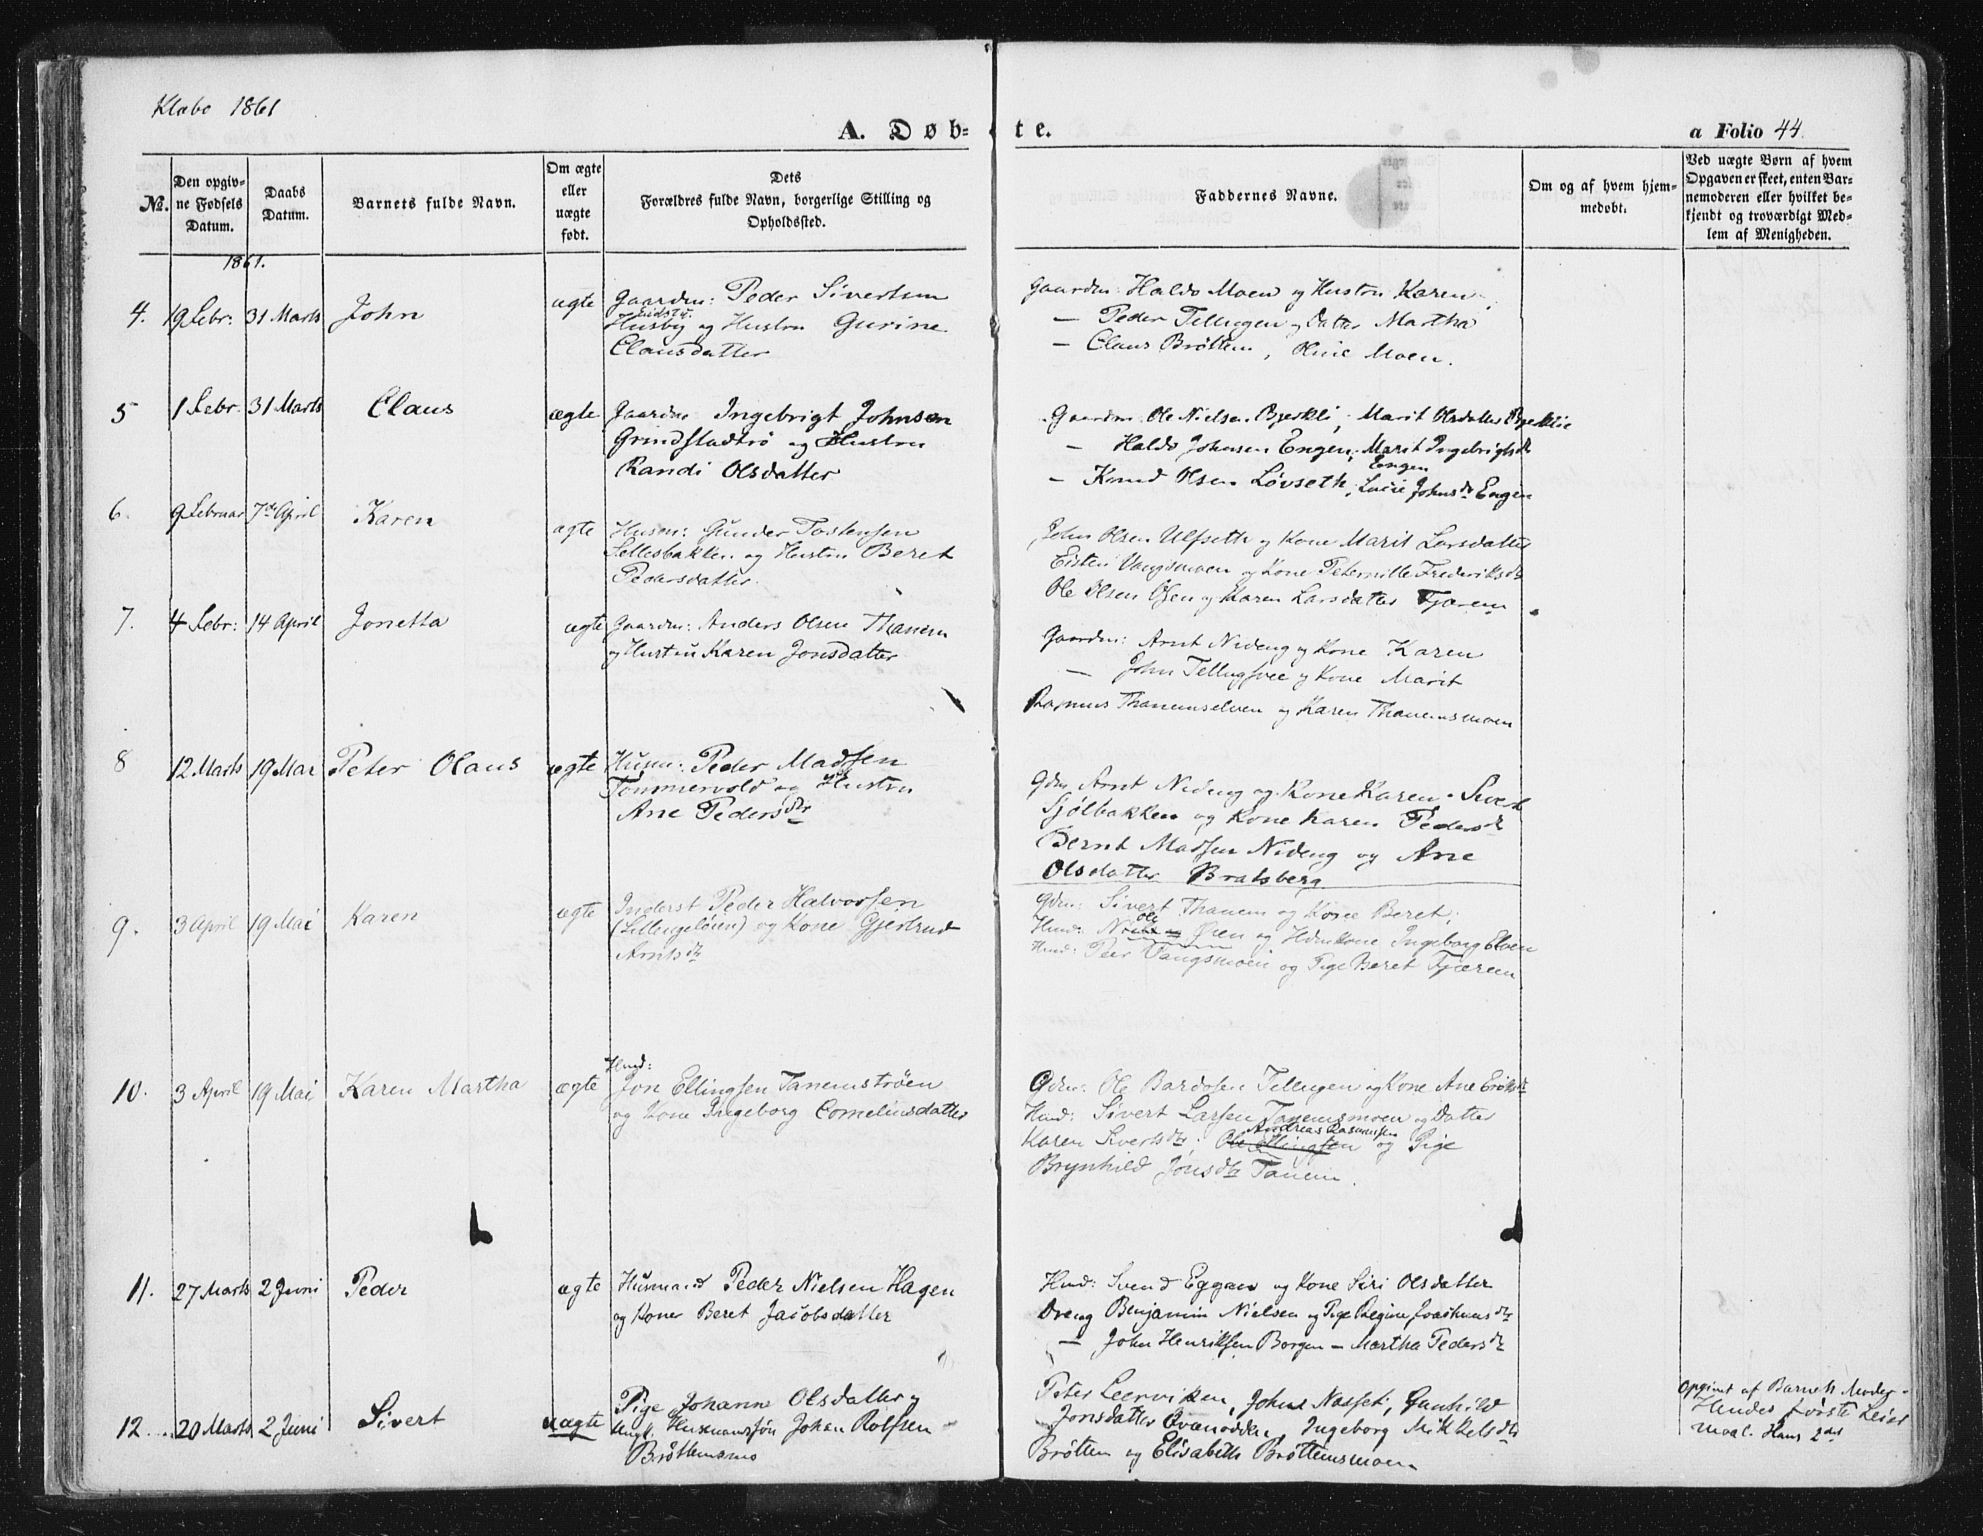 Klæbo 1861
A. Døb-te.
a Folio 44.
No.
Den opgiv-
ne Fødsels
Datum.
Daabs
Datum.
Barnets fulde Navn.
Om ægte
eller
uægte
født.
Dets
Forældres fulde Navn, borgerlige Stilling og
Opholdssted.
Faddernes Navne.
Om og af hvem hjem-
medøbt.
Ved uægte Børn af hvem
Opgaven er skeet, enten Bar-
nemoderen eller hvilket be-
kjendt og troværdigt Med-
lem af Menigheden.
1861.
4. 19 Febr: 31 Marts John ægte Gaardm: Peder Sivertsen
Husby og Hustru Gurine
Clausdatter
Gaardm: Haldo Moen og Hustru Karen
— Peder Tellugen og Datter Martha
— Claus Brøttem, Moen.
5 1 Febr. 31 Marts Claus ægte Gaardm Ingebrigt Johnsen
Grindstadtrø og Hustru
Randi Olsdatter
Gaardm Ole Nielsen Bjerkli, Marit Olsdatter Bjerklie
— Haldo Johnsen Engen, Marit Ingebrigtsdr
Engen
— Knud Olsen Løvseth, Johnsdr Engen
6. 9 Februar 7de April Karen ægte Husm: Gunder Tostensen
Sellesbakken og Hustru Beret
Pedersdatter.
John Olsen Ulfseth og Kone Marit Larsdatter
Eisten Vangsmoen og Kone Peternille Frederiksdr
Ole Olsen Osen og Karen Larsdatter Tjærem
7. 4 Febr: 14 April Jonetta ægte Gaardm: Anders Olsen Thanem
og Hustru Karen Jonsdatter
Gaardm: Arnt Nideng og Kone Karen
— John Tellugsvee og Kone Marit
Rasmus Thanemselven og Karen Thanemsmoen
8 12 Marts 19 Mai Peter Olaus ægte Husm: Peder Madsen
Tømmervold og Hustru
Ane Pedersdtr
Gdm Arnt Nideng og Kone Karen. Sivert
Sjølbakken og Kone Karen Pedersdr
Bernt Madsen Nideng og Ane
Olsdatter Bratsberg
9. 3 April 19 Mai Karen ægte Inderst Peder Halvorsen
(Sellugeløien) og Kone Gjertrud
Arntsdr
Gdm: Sivert Thanem og Kone Beret;
Hmd: Ole Øien og Hdm Kone Ingeborg Elven
Hmd: Peer Vangsmoen og Pige Beret Tjærem
10. 3 April 19 Mai Karen Martha ægte Hmd:
Jon Ellingsen Tanemstrøen
og Kone Ingeborg Corneliusdatter
Gdm: Ole Bardosen Tellugen og Kone Ane Eriksdr
Hmd: Sivert Larsen Tanemsmoen og Datter
Karen Sivertsdtr; Ole Ellingsen Andreas Rasmussen og Pige
Brynhild Jonsdtr Tanem.
11. 27 Marts 2 Juni Peder ægte Husmand Peder Nielsen Hagen
og Kone Beret Jacobsdatter
Hmd: Svend Eggan og Kone Siri Olsdatter
Dreng Benjamin Nielsen og Pige Regine Joachimsdtr
— John Henriksen Borgen — Martha Pedersdr
12. 20 Marts 2 Juni Sivert uægte Pige Johanne Olsdatter og
Ungk. Husmandssøn Johan Rolfsen
Brøttemsmo
Peter Leerviken, Johns Nasset, Gunhild
Jonsdatter Ovanodden, Ingeborg Mikkelsdtr
Brøtten og Elisabeth Brøttemsmoen
Opgivet af Barnets Moder.
Hendes første Leier
maal. Hans 2det